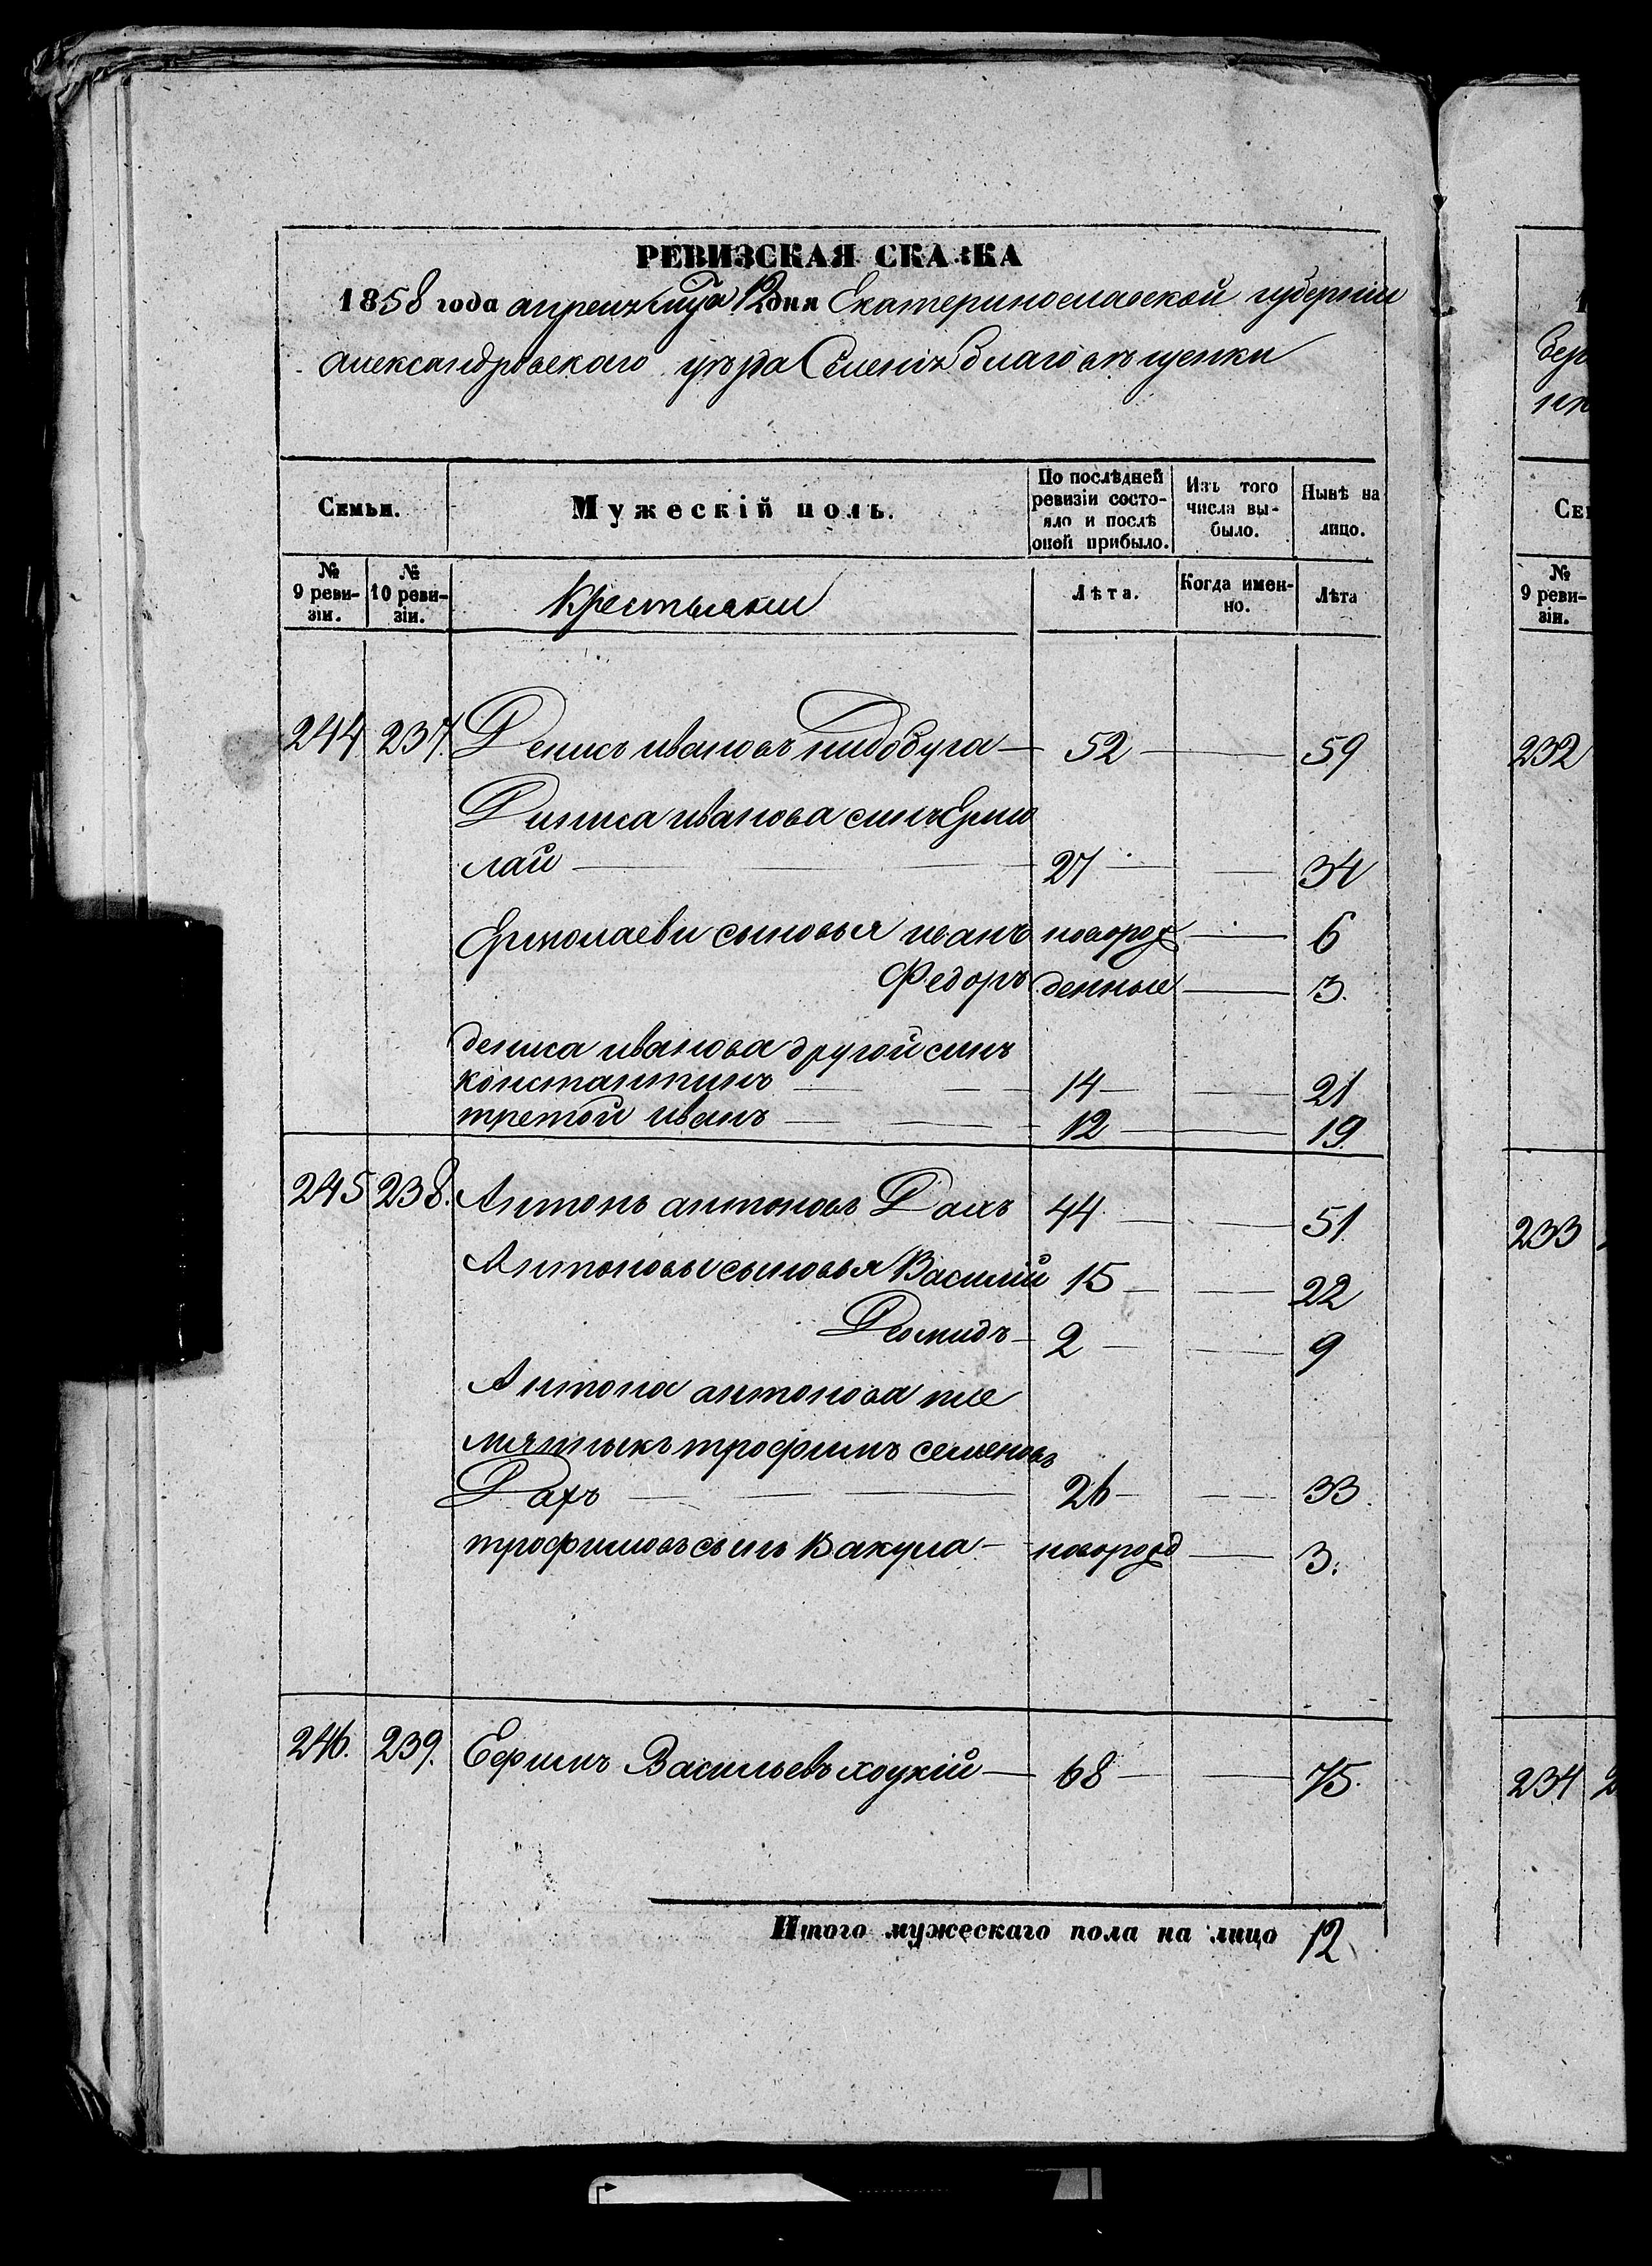 РЕВИЗСКАЯ СКАЗКА
1858 года апреля мца 12 дня Екатеринославской губернии
александровского уезда Благовещенки
Семьи.
Мужескій полъ.
По послѣдней ревизіи состояло и послѣ оной прибыло.
Изъ того числа выбыло.
Нынѣ на лицо.
№ 9 ревизіи.
№ 10 ревизіи.
Крестьяни
Лѣта.
Когда именно.
Лѣта
244 237. Денисъ ивановъ пидобуга — 52 — 59
Дениса иванова синъ Ермо
лай — 27 — 34
Ермолаеви сыновья иванъ новорож — 6
Федоръ денные — 3.
дениса иванова другой синъ
константинъ — 14 — 21
третой иванъ — 12 — 19.
245 238. Антонъ антоновъ Дахъ 44 — 51
Антоновы сыновья Василій 15 — 22
Деомидъ — 2 — 9
Антона антонова пле
мянныкъ трофимъ семеновъ
Дахъ — 26 — 33.
трофимовъ сынъ Вакула — новорожд — 3.
246. 239. Ефимъ Васильевъ хоцкій — 68 — 75.
Итого мужескаго пола на лицо 12
Сем
№ 9 ревизіи.
232
233
234